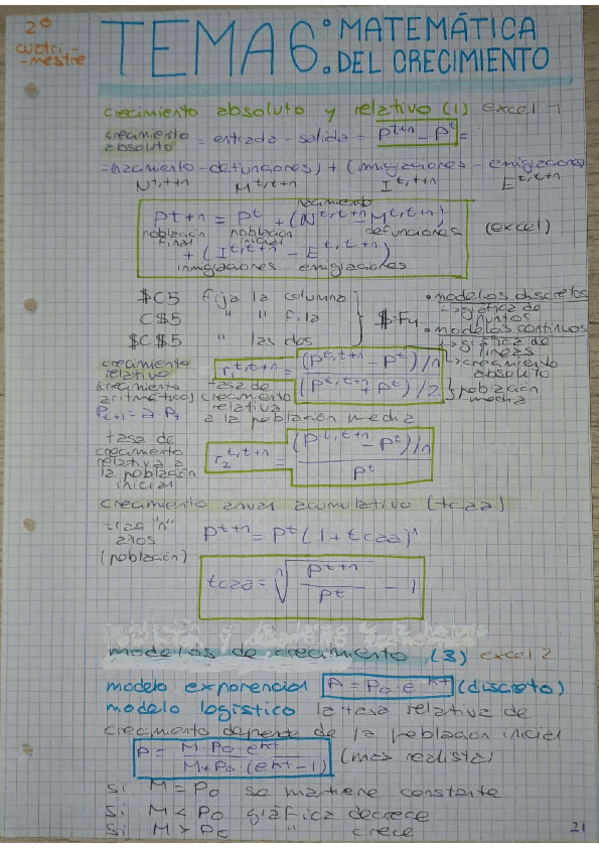 2º
cuatri-
-mestre
TEMA 6: MATEMÁTICA
DEL CRECIMIENTO
crecimiento absoluto y relativo (1) excel 1
crecimiento absoluto = entrada - salida = P^t+n - P^t =
=(nacimiento - defunciones) + (inmigraciones - emigraciones)
N^t,t+n M^t,t+n I^t,t+n E^t,t+n
nacimiento
P^t+n = P^t + (N^t,t+n - M^t,t+n)
población final población inicial defunciones (excel)
+ (I^t,t+n - E^t,t+n)
inmigraciones emigraciones
$C5 fija la columna
C$5 " " fila
$C$5 " las dos
$: F4
• modelos discretos
↳ gráfica de puntos
• modelos continuos
↳ gráfica de líneas
crecimiento relativo
r^t,t+n = (P^t,t+n - P^t)/n
(P^t,t+n + P^t)/2
↳ crecimiento absoluto
} población media
(crecimiento aritmético)
P_t+1 = a · P_t
tasa de crecimiento relativa
a la población media
tasa de crecimiento relativa a la población inicial
r_2^t,t+n = (P^t,t+n - P^t)/n
P^t
crecimiento anual acumulativo (tcaa)
tras "n" años
(población)
P^t+n = P^t (1 + tcaa)^n
tcaa = ⁿ√P^t+n / P^t - 1
modelos de crecimiento (3) excel 2
modelo exponencial P = P0 · e^kt (discreto)
modelo logístico la tasa relativa de
crecimiento depende de la población inicial
P = M P0 e^kt
M + P0 · (e^kt - 1)
(mas realista)
Si M = P0 se mantiene constante
Si M < P0 gráfica decrece
Si M > P0 " crece
21